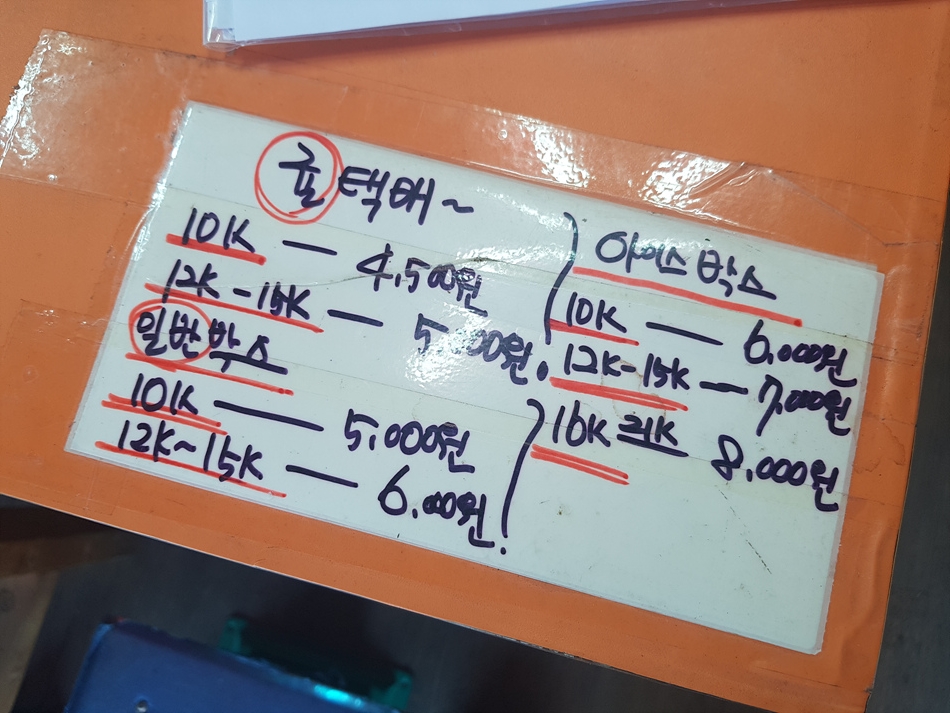 귤 택배~
10K — 4,500원
12K-15K — 5,000원.
일반박스
10K — 5,000원
12K~15K — 6,000원.
아이스박스
10K — 6,000원
12K-15K — 7,000원
16K 8,000원